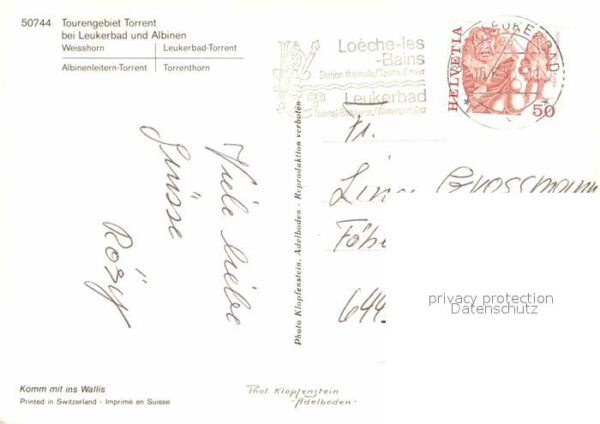 50744 Tourengebiet Torrent
bei Leukerbad und Albinen
Weisshorn Leukerbad-Torrent
Albinenleitern-Torrent Torrenthorn
Loèche-les
-Bains
Station thermale/Sports d'hiver
Leukerbad
LEUKERBAD
HELVETIA
50
Viele liebe
Grüsse
Rösy
Photo Klopfenstein, Adelboden - Reproduktion verboten
Fr.
Grossmann
644
privacy protection
Datenschutz
Komm mit ins Wallis
Printed in Switzerland - Imprimé en Suisse
Phot Klopfenstein
-Adelboden-